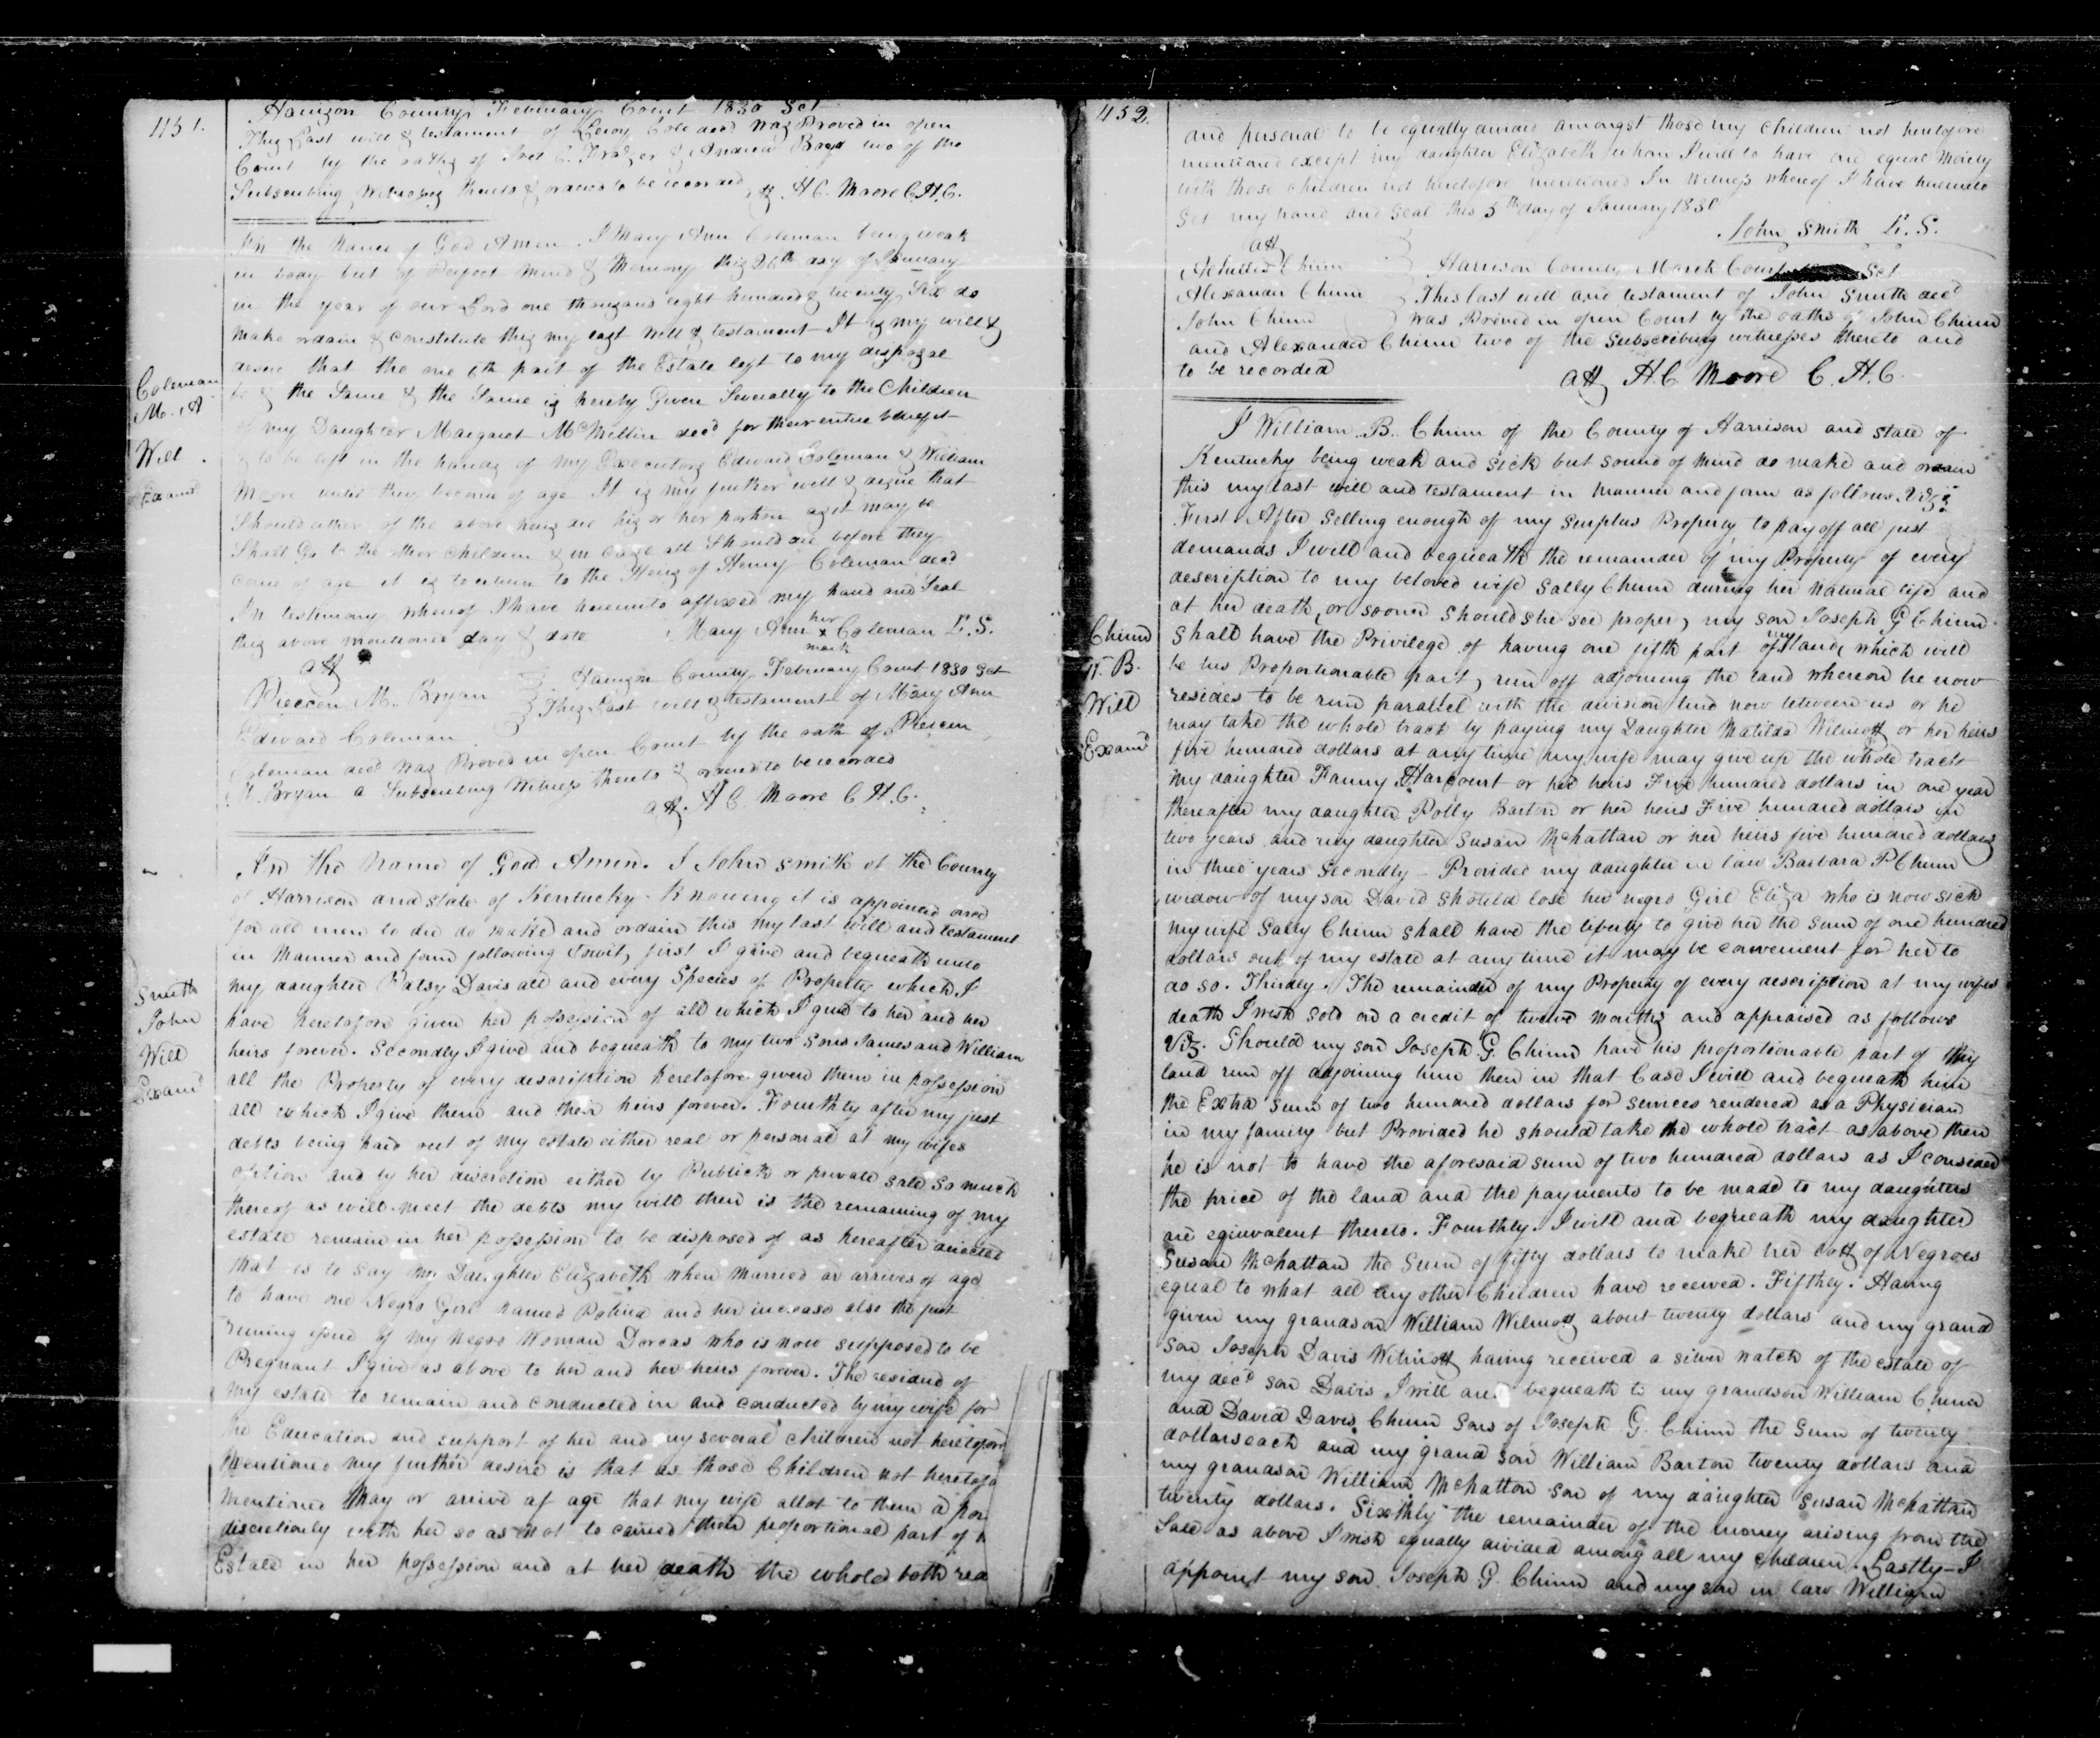 451.
Harrison County February Court 1830 Set
This Last will & testament of Leroy Cole decd was Proved in open
Court by the oaths of Joel C. Frazer & Andrew Boyd two of the
Subscribing Witnesses thereto & ordered to be recorded
att H. C. Moore C.H.C.
In the Name of God Amen. I Mary Ann Coleman being weak
in body but of Perfect mind & Memory this 26th day of January
in the year of our Lord one thousand eight hundred & twenty Six do
make ordain & constitute this my last will & testament It is my will &
desire that the one 6th part of the Estate left to my disposal
be & the Same & the Same is hereby Given Severally to the Children
of my Daughter Margaret McMillin decd for their entire benefit
& to be left in the hands of my Executors Edward Coleman & William
Moore until they become of age It is my further will & desire that
Should either of the above heirs die his or her portion as it may be
Shall Go to the other children & in case all Should die before they
come of age it is to return to the Heirs of Henry Coleman decd
In testimony whereof I have hereunto affixed my hand and Seal
this above mentioned day & date Mary Ann her x mark Coleman L.S.
Coleman
M. A
Will
Examd
att
M. Bryan
Edward Coleman
Harrison County February Court 1830 Set
This Last will & testament of Mary Ann
Coleman decd was Proved in open Court by the oath of
M. Bryan a Subscribing Witness thereto & ordered to be recorded
att. H C. Moore C H.C.
In the Name of God Amen. I John Smith of the County
of Harrison and state of Kentucky Knowing it is appointed once
for all men to die do make and ordain this my last will and testament
in Manner and form following towit, first I give and bequeath unto
my daughter Patsy Davis all and every Species of Property which I
have heretofore given her possession of all which I give to her and her
heirs forever. Secondly I give and bequeath to my two sons James and William
all the Property of every description heretofore given them in possession
all which I give them and their heirs forever. Fourthly after my just
debts being paid out of my estate either real or personal at my wifes
option and by her discretion either by Publick or private sale so much
thereof as will meet the debts my will then is the remaining of my
estate remain in her possession to be disposed of as hereafter directed
that is to say my Daughter Elizabeth when married or arrives of age
to have one Negro Girl named and her increase also the just
issue of my Negro Woman Dorcas who is now supposed to be
Pregnant I give as above to her and her heirs forever. The residue of
my estate to remain and conducted in and conducted by my wife for
the Education and support of her and my several children not heretofore
Mentioned My further desire is that as those Children not heretofo
mentioned May or arrive af age that my wife allot to them a por
discretionly with her so as not to exceed their proportional part of
Estate in her possession and at her death the whole both rea
Smith
John
Will
Examd
452.
and personal to be equally divided amongst those my children not heretofore
mentioned except my daughter Elizabeth whom I will to have one equal Moiety
with those children not heretofore mentioned In witness whereof I have hereunto
set my hand and seal this 5th day of January 1830
John Smith L. S.
att
Achilles Chinn
Alexander Chinn
John Chinn
Harrison County March Court Set
This last will and testament of John Smith decd
was Proved in open Court by the oaths of John Chinn
and Alexander Chinn two of the subscribing witnesses thereto and
to be recorded
att H. C. Moore C. H. C.
I William .B. Chinn of the County of Harrison and state of
Kentucky being weak and sick but sound of mind do make and ordain
this my last will and testament in Manner and form as follows Viz:
First After selling enough of my surplus Property to pay off all just
demands I will and bequeath the remainder of my Property of every
description to my beloved wife Sally Chinn during her natural life and
at her death, or sooner should she see proper, my son Joseph G Chinn
shall have the Privilege of having one fifth part of my land, which will
be his Proportionable part, run off adjoining the land whereon he now
resides to be run parallel with the division line now between us or he
may take the whole tract by paying my Daughter Matilda Wilmott or her heirs
five hundred dollars at any time my wife may give up the whole tract
my daughter Fanny Harcourt or her heirs Five hundred dollars in one year
thereafter my daughter Polly Barton or her heirs Five hundred dollars in
two years and my daughter Susan McHattan or her heirs five hundred dollars
in three years Secondly - Provided my daughter in law Barbara P Chinn
widow of my son David should lose her negro Girl Eliza who is now sick
my wife Sally Chinn shall have the liberty to give her the sum of one hundred
dollars out of my estate at any time it may be convenient for her to
do so. Thirdly. The remainder of my Property of every description at my wifes
death I wish sold on a credit of twelve months and appraised as follows
Viz. Should my son Joseph G. Chinn have his proportionable part of this
land run off adjoining him then in that Case I will and bequeath him
the Extra sum of two hundred dollars for services rendered as a Physician
in my family but Provided he should take the whole tract as above then
he is not to have the aforesaid sum of two hundred dollars as I consider
the price of the land and the payments to be made to my daughters
are equivalent thereto. Fourthly. I will and bequeath my daughter
Susan McHattan the sum of fifty dollars to make her lott of Negroes
equal to what all my other Children have received. Fifthly. Having
given my grandson William Wilmott about twenty dollars and my grand
son Joseph Davis Wilmott having received a silver watch of the estate of
my decd son Davis I will and bequeath to my grandson William Chinn
and David Davis Chinn Sons of Joseph G. Chinn the sum of twenty
dollars each and my grand son William Barton twenty dollars and
my grandson William McHatton son of my daughter Susan McHattan
twenty dollars. Sixthly the remainder of the money arising from the
Sale as above I wish equally divided among all my children. Lastly - I
appoint my son Joseph G. Chinn and my son in law William
Chinn
W. B.
Will
Examd